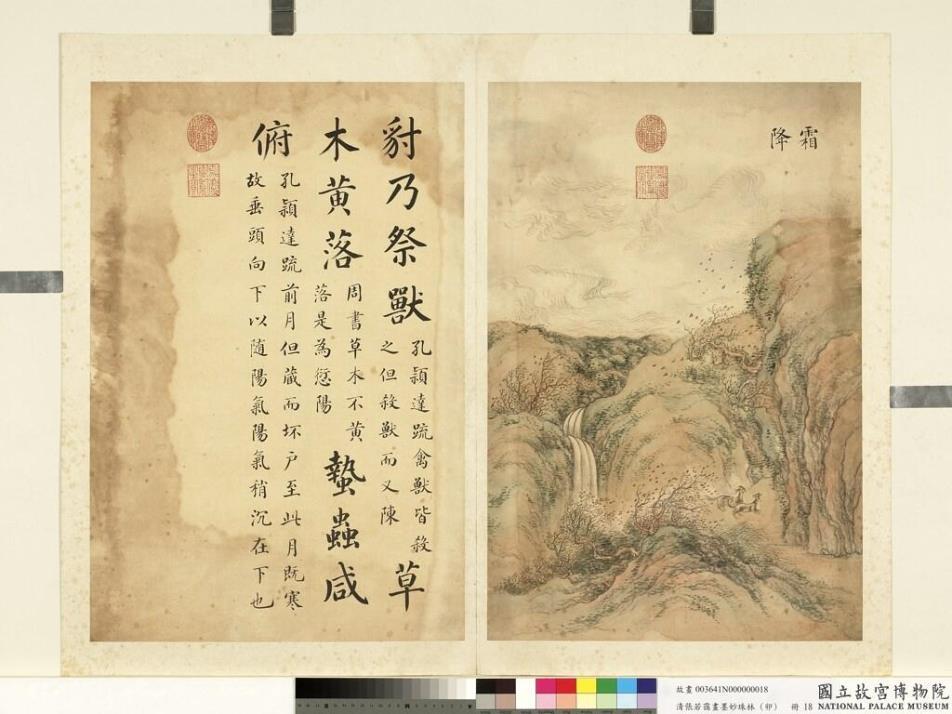 霜降
豺乃祭獸
孔頴達疏禽獸皆殺
之但殺獸而又陳
草
木黄落
周書草木不黄
落是為愆陽
蟄蟲咸
俯
孔頴達疏前月但蔵而坏户至此月既寒
故垂頭向下以随陽氣陽氣稍沉在下也
故畫 003641N000000018
清張若靄畫墨妙珠林（卯） 冊 18
國立故宮博物院
NATIONAL PALACE MUSEUM